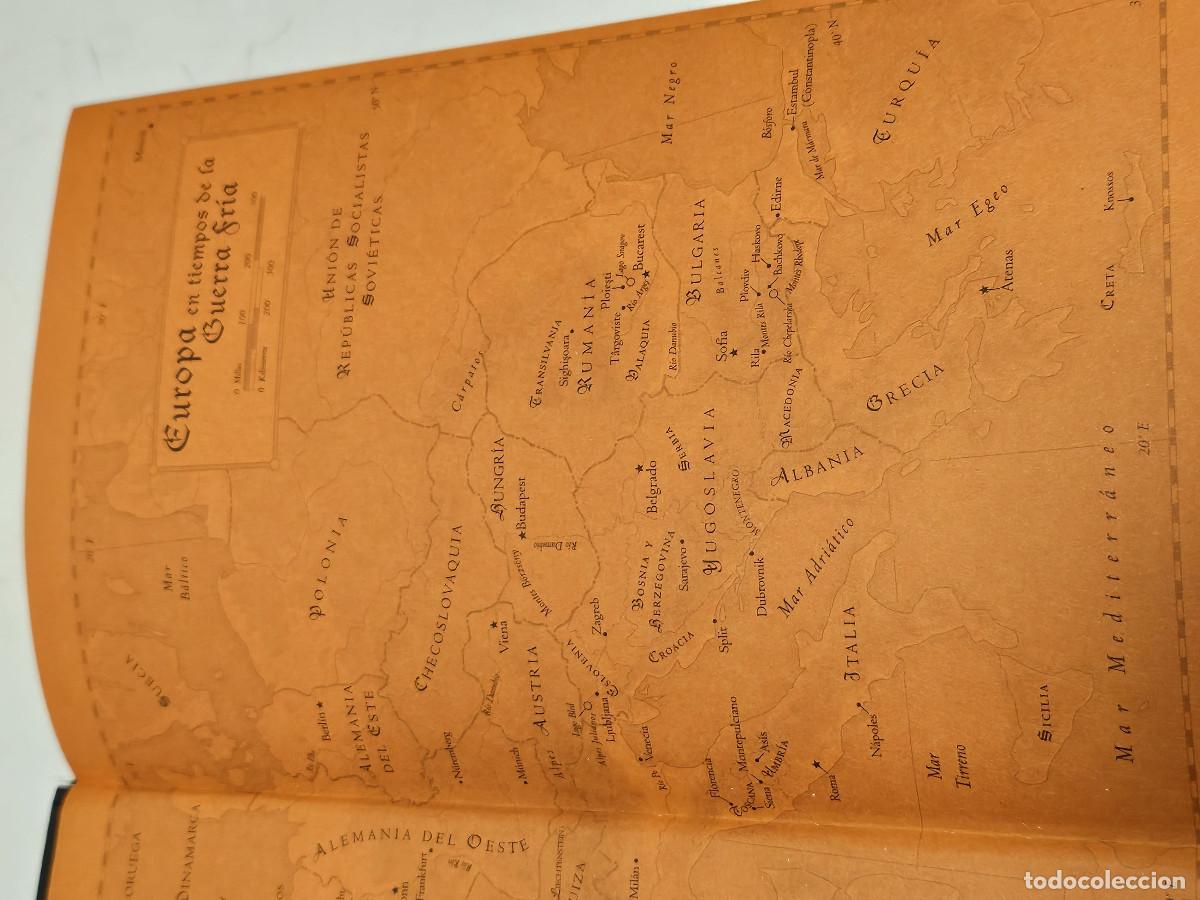 Europa en tiempos de la
Guerra Fría
0 Millas 100 200 300
0 Kilómetros 200 300
50° N
UNIÓN DE
REPÚBLICAS SOCIALISTAS
SOVIÉTICAS
Mar
Báltico
SUECIA
POLONIA
Berlín
ALEMANIA
DEL ESTE
CHECOSLOVAQUIA
Cárpatos
Núremberg
Río Danubio
Viena
Múnich
AUSTRIA
Alpes
HUNGRÍA
Budapest
Montes Börzsöny
Río Danubio
TRANSILVANIA
Sighișoara
RUMANÍA
Ploiești
Târgoviste
Lago Snagov
Bucarest
Río Argeș
VALAQUIA
Río Danubio
Mar Negro
Lago Bled
Alpes Julianos
Ljubljana
ESLOVENIA
Zagreb
CROACIA
BOSNIA Y
HERZEGOVINA
Sarajevo
Belgrado
SERBIA
YUGOSLAVIA
MONTENEGRO
Split
Dubrovnik
BULGARIA
Balcanes
Sofia
Plovdiv
Haskovo
Bachkovo
Rila
Montes Rila
Río Chepelarska
Montes Ródope
Edirne
Bósforo
Estambul
(Constantinopla)
Mar de Mármara
40° N
TURQUÍA
MACEDONIA
ALBANIA
GRECIA
Mar Egeo
Atenas
CRETA
Knossos
Mar Adriático
Venecia
Río Po
Florencia
TOSCANA
Siena
Montepulciano
Asís
UMBRÍA
Roma
ITALIA
Nápoles
Mar
Tirreno
SICILIA
Mar Mediterráneo
20° E
DINAMARCA
ALEMANIA DEL OESTE
Frankfurt
Río Rin
LIECHTENSTEIN
Milán
todocoleccion